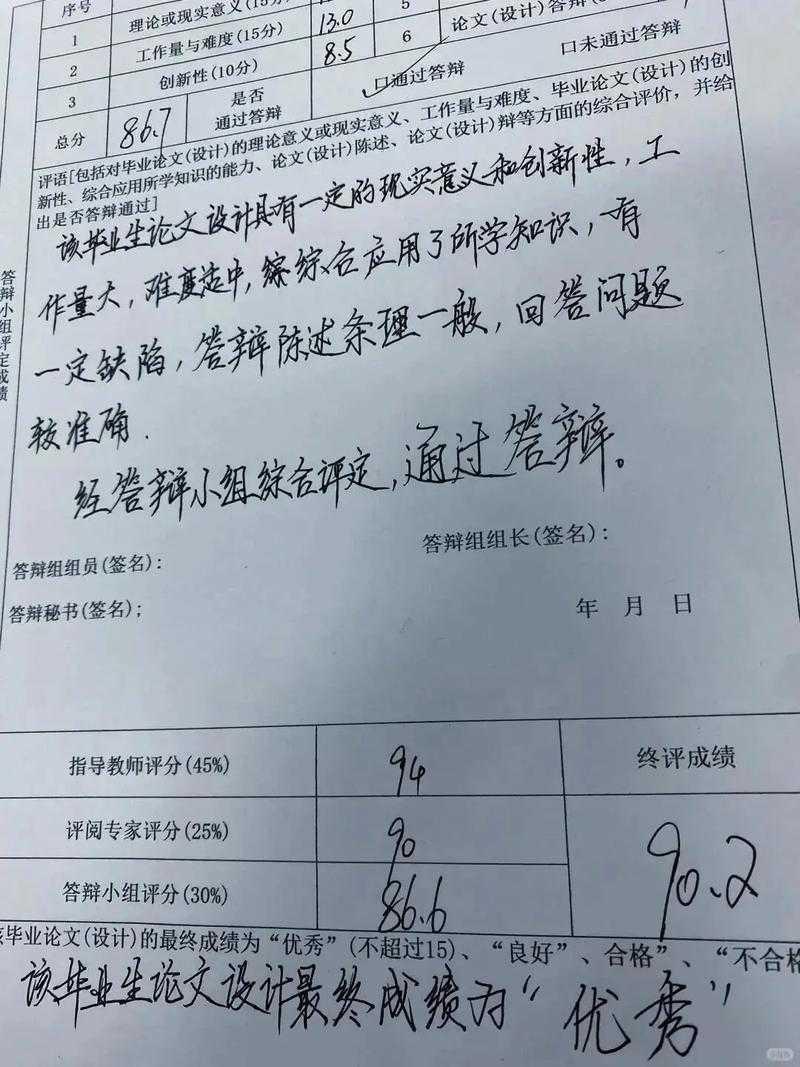 序号
理论或现实意义(15分)
13.0
5
1
工作量与难度(15分)
8.5
6
论文(设计)答辩
2
创新性(10分)
口通过答辩
口未通过答辩
3
总分
86.7
是否
通过答辩
评语[包括对毕业论文(设计)的理论意义或现实意义、工作量与难度、毕业论文(设计)的创
新性、综合应用所学知识的能力、论文(设计)陈述、论文(设计)辩等方面的综合评价，并给
出是否答辩通过]
该毕业生论文设计具有一定的现实意义和创新性，工
作量大，难度适中，综综合应用了所学知识，有
一定缺陷，答辩陈述条理一般，回答问题
较准确.
经答辩小组综合评定，通过答辩。
答辩小组评定成绩
答辩组组员(签名)：
答辩组组长(签名)：
答辩秘书(签名)；
年 月 日
指导教师评分(45%)
94
终评成绩
评阅专家评分(25%)
90
90.2
答辩小组评分(30%)
86.6
毕业论文(设计)的最终成绩为“优秀”(不超过15)、“良好”、合格”、“不合格
该毕业生论文设计最终成绩为“优秀”